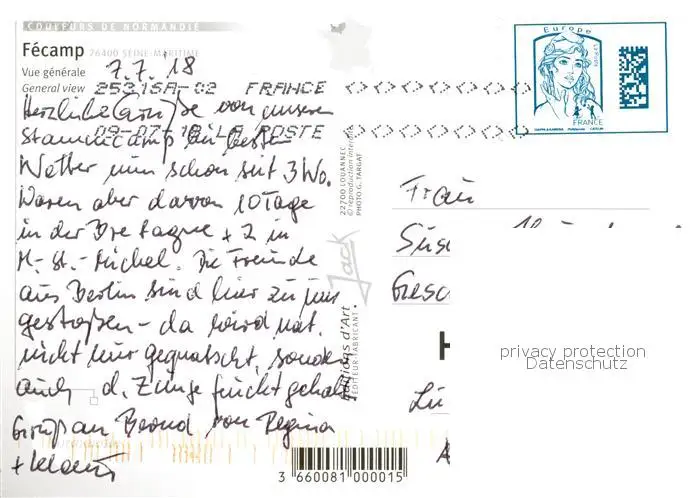 COULEURS DE NORMANDIE
Fécamp 76400 SEINE-MARITIME
Vue générale
General view
7.7.'18
25315A-02 FRANCE
09-07-18 LA POSTE
Herzliche Grüße von unserem
Stammcamp bei
Wetter nun schon seit 3 Wo.
Waren aber davon 10 Tage
in der Bretagne + 2 in
M.-St.-Michel. Die Freunde
aus Berlin sind hier zu uns
gestoßen - da wird nat.
nicht nur gequatscht, sondern
auch d. Zunge feucht gehalt.
Gruß an Bernd von Regina
+ Klaus
22700 LOUANNEC
© reproduction interdite
PHOTO G. TARGAT
Jack
Editions d'Art
ÉDITEUR-FABRICANT
3 660081 000015
Europe
FRANCE
Frau
privacy protection
Datenschutz